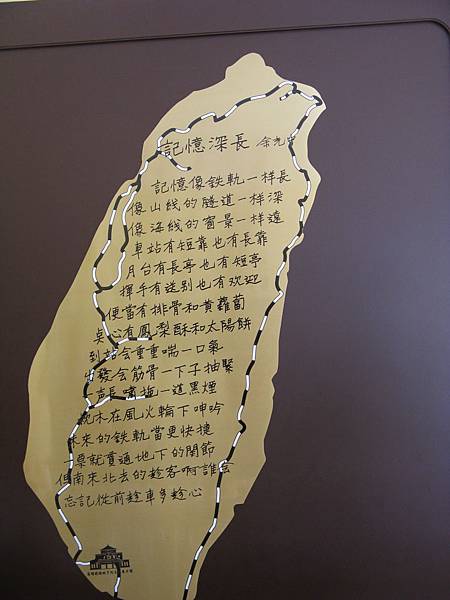 記憶深長 余光中
記憶像鉄軌一样長
像山线的隧道一样深
像海线的窗景一样遠
車站有短靠也有長靠
月台有長亭也有短亭
揮手有送别也有欢迎
便當有排骨和黄蘿蔔
点心有鳳梨酥和太陽餅
到站会重重喘一口氣
出發会筋骨一下子抽緊
一声長嘯拖一道黑煙
枕木在風火輪下呻吟
未來的鉄軌當更快捷
早就貫通地下的関節
但南來北去的趁客啊誰会
忘記从前趁車多趁心